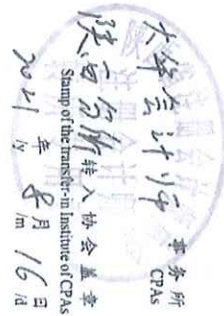 大华会计师 事务所
CPAs
陕西分所 转入协会盖章
Stamp of the transfer-in Institute of CPAs
2021 年 8 月 16 日
/y /m /d